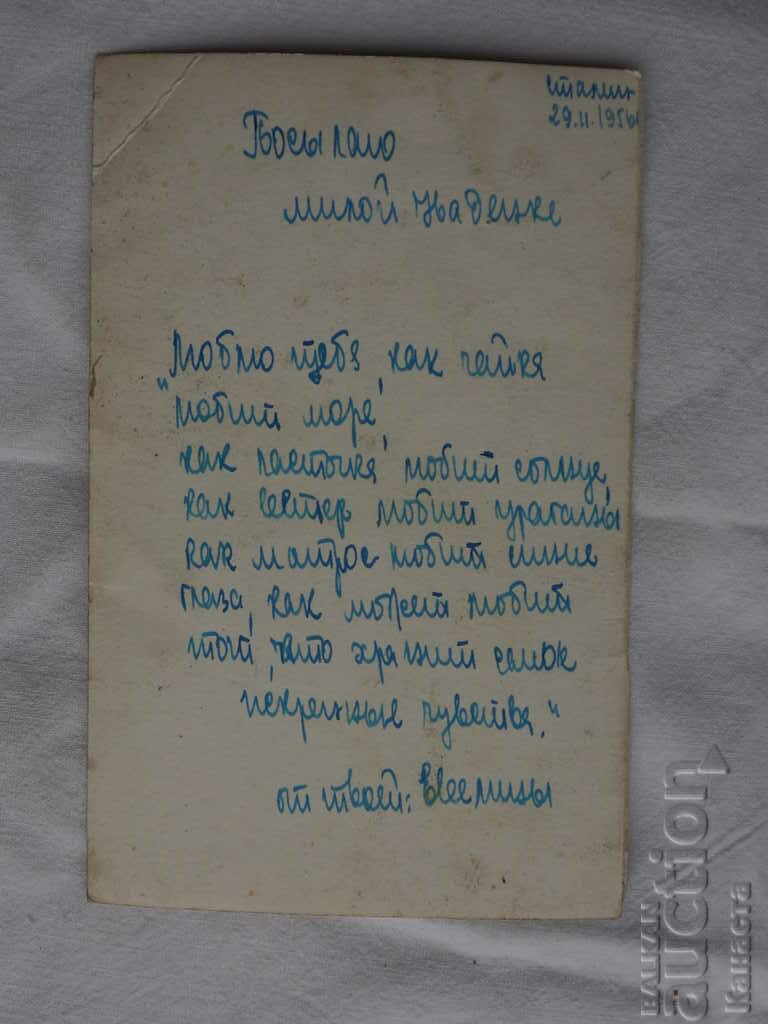 Сталин
29.II.1956
Посылаю
милой Наденке
"Люблю тебя, как чайка
любит море,
как ласточка любит солнце,
как ветер любит ураганы
как матрос любит синие
глаза, как может любит
той, что хранит самые
искренные чувства."
от твоей: Евелины
BALKAN
auction
Канаста